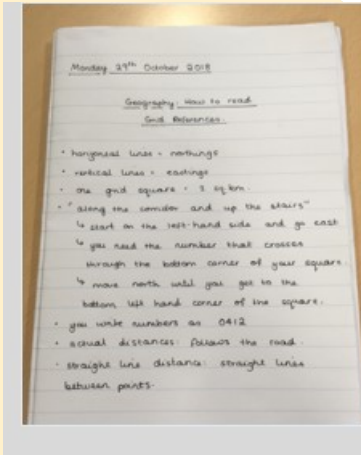 Monday 29th October 2018
Geography: How to read
Grid References.
• horizontal lines = northings
• vertical lines = eastings
• one grid square = sq km.
• "along the corridor and up the stairs"
↳ start on the left-hand side and go east
↳ you need the number that crosses
through the bottom corner of your square.
↳ move north until you get to the
bottom left hand corner of the square.
• you write numbers as 0412
• actual distances: follows the road.
• straight line distance: straight lines
between points.